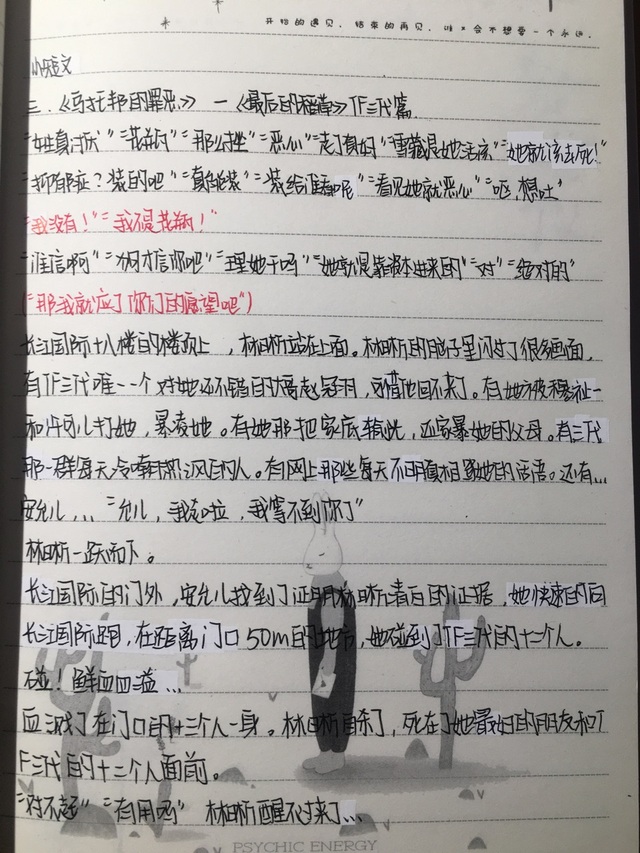 开始的遇见，结束的再见，谁又会不想要一个永远.
小短文
三、《乌托邦的罪恶》—《最后的稻草》TF三代篇
"女主真讨厌""花瓶的""那么挫""恶心""走了真好""雪藏是她活该""她就该去死!"
"抑郁症？装的吧""真能装""装给谁看呢""看见她就恶心""呕，想吐"
"我没有！""我不是花瓶！"
"谁信啊""狗才信你吧""理她干吗""她就是靠资本进来的""对""绝对的"
("那我就应了你们的愿望吧")
长江国际十八楼的楼顶上，林晰站在上面。林晰的脑子里闪过了很多画面，
有TF三代唯一一个对她还不错的哥哥赵冠羽，可惜他回不来了。有她被穆祉一
和许可儿打她，暴凌她。有她那把家底输光，还家暴她的父母。有三代
那一群每天冷嘲热讽的人。有网上那些每天不明真相骂她的话语。还有…
安允儿…"允儿，我走啦，我等不到你了"
林晰一跃而下。
长江国际的门外，安允儿找到了证明林晰清白的证据，她快速的向
长江国际跑，在距离门口50m的地方，她碰到了TF三代的十二个人。
碰！鲜血四溢…
血溅了在门口的十三个人一身。林晰自杀了，死在了她最好的朋友和T
F三代的十二个人面前。
"对不起""有用吗" 林晰醒不过来了…
PSYCHIC ENERGY